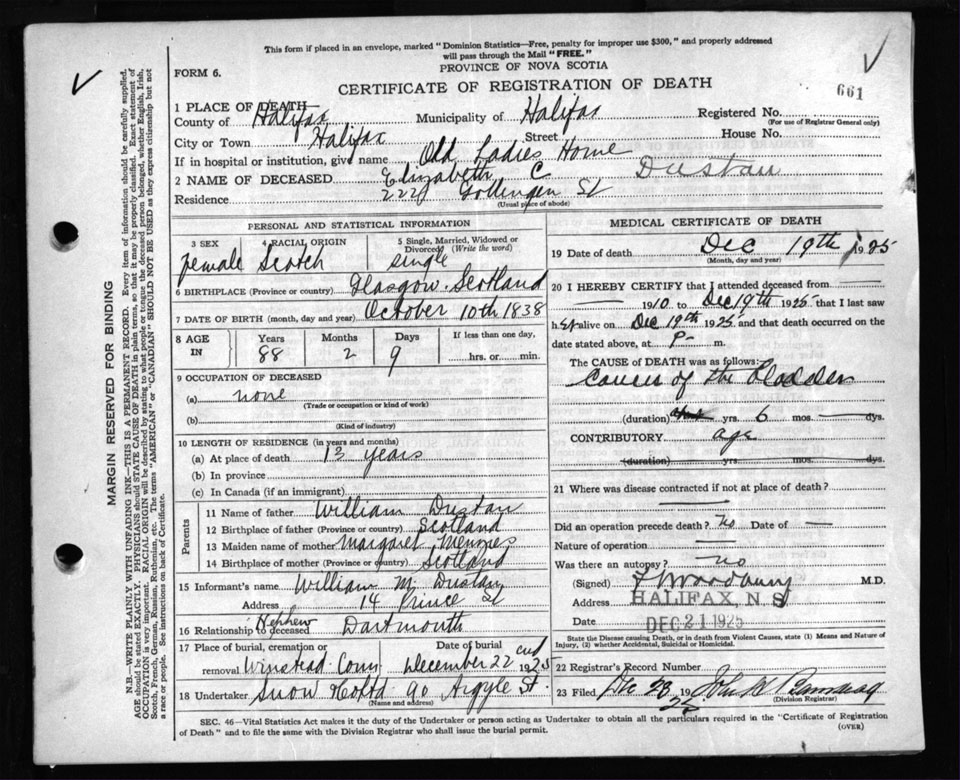 This form if placed in an envelope, marked "Dominion Statistics—Free, penalty for improper use $300," and properly addressed
will pass through the Mail "FREE."
PROVINCE OF NOVA SCOTIA
FORM 6.
CERTIFICATE OF REGISTRATION OF DEATH
661
1 PLACE OF DEATH
County of Halifax Municipality of Halifax Registered No.
(For use of Registrar General only)
City or Town Halifax Street House No.
If in hospital or institution, give name Old Ladies Home
2 NAME OF DECEASED. Elizabeth C Dustan
Residence 222 Gottingen St
(Usual place of abode)
PERSONAL AND STATISTICAL INFORMATION
3 SEX 4 RACIAL ORIGIN 5 Single, Married, Widowed or Divorced (Write the word)
female Scotch single
6 BIRTHPLACE (Province or country) Glasgow. Scotland
7 DATE OF BIRTH (month, day and year) October 10th 1838
8 AGE IN Years Months Days If less than one day,
88 2 9 hrs. or min.
9 OCCUPATION OF DECEASED
(a) none
(Trade or occupation or kind of work)
(b)
(Kind of industry)
10 LENGTH OF RESIDENCE (in years and months)
(a) At place of death 13 years
(b) In province
(c) In Canada (if an immigrant)
Parents
11 Name of father William Dustan
12 Birthplace of father (Province or country) Scotland
13 Maiden name of mother Margaret Menzies
14 Birthplace of mother (Province or country) Scotland
15 Informant's name William M. Dustan
Address 14 Prince St
16 Relationship to deceased Nephew Dartmouth
17 Place of burial, cremation or removal Date of burial
December 22 1925
18 Undertaker Snow 90 Argyle St.
(Name and address)
MEDICAL CERTIFICATE OF DEATH
19 Date of death Dec 19th 1925
(Month, day and year)
20 I HEREBY CERTIFY that I attended deceased from —
— 1910 to Dec 19th 1925 that I last saw
her alive on Dec 19th 1925 and that death occurred on the
date stated above, at P— m.
The CAUSE of DEATH was as follows:
Cancer of the Bladder
(duration) yrs. 6 mos. — dys.
CONTRIBUTORY age
(duration) yrs. mos. dys.
21 Where was disease contracted if not at place of death?
—
Did an operation precede death? No Date of —
Nature of operation —
Was there an autopsy? — no
(Signed) F Woodbury M.D.
Address HALIFAX, N S
Date DEC 21 1925
State the Disease causing Death, or in death from Violent Causes, state (1) Means and Nature of
Injury, (2) whether Accidental, Suicidal or Homicidal.
22 Registrar's Record Number
23 Filed Dec 23 19 25 John
(Division Registrar)
SEC. 46—Vital Statistics Act makes it the duty of the Undertaker or person acting as Undertaker to obtain all the particulars required in the "Certificate of Registration
of Death" and to file the same with the Division Registrar who shall issue the burial permit.
(OVER)
MARGIN RESERVED FOR BINDING
N.B.—WRITE PLAINLY WITH UNFADING INK—THIS IS A PERMANENT RECORD. Every item of information should be carefully supplied.
AGE should be stated EXACTLY. PHYSICIANS should STATE CAUSE OF DEATH in plain terms, so that it may be properly classified. Exact statement of
OCCUPATION is very important. RACIAL ORIGIN will be described by stating to what people or tongue the deceased person belonged, whether English, Irish,
Scotch, French, German, Russian, Ruthenian, etc. The terms "AMERICAN" or "CANADIAN" SHOULD NOT BE USED as they express citizenship but not
a race or people. See instructions on back of Certificate.